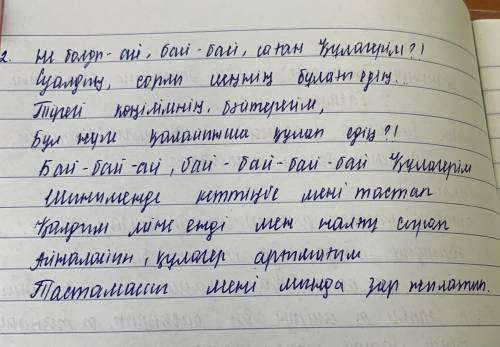 2. не болды-ай, бай-бай, саған Құлагерім?!
Уәлдың, сорлы иеңнің бұлаты едің..
Тірегі көңілімнің, бәйтерегім,
Бұл жұрт қалайынша құлап едің?!
Бай-бай-ай, бай-бай-бай-бай Құлагерім
Шынымменде кеттіңбе мені тастап
Қалдым міне енді мен налыш сорап
Айналайын, құлагер артыматым
Тастамашы мені мында зар жылатып.